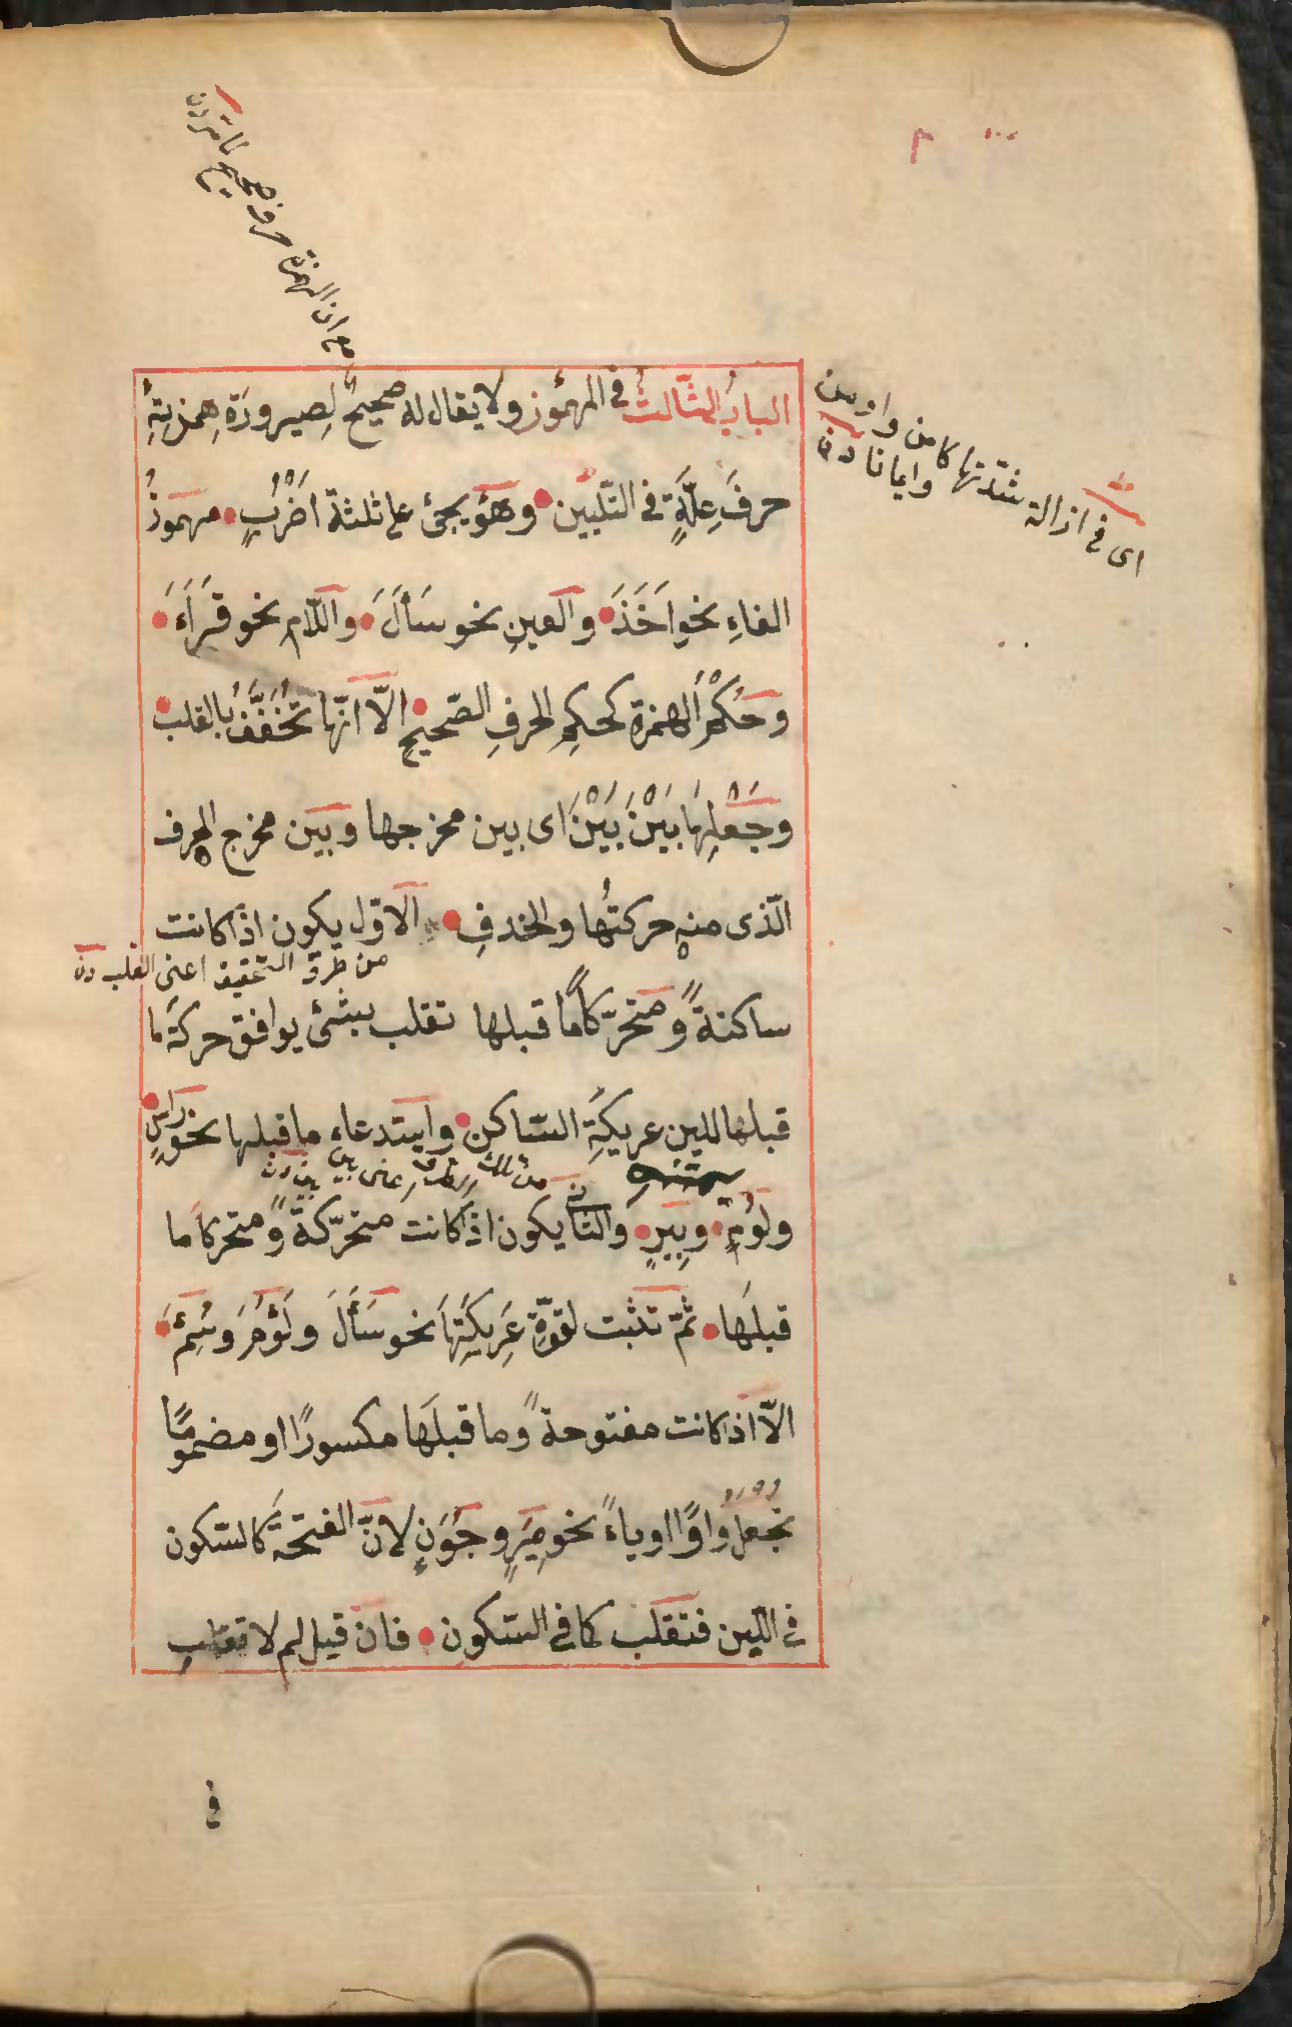 البابُ الثّالثُ في المهمُوز ولا يقال له صحيحٌ لِصيرورَةِ همزتِهِ
حرفَ عِلّةٍ في التّليين وهُوَ يجئ على ثلثة اَضْرُبٍ مهموزُ
الفاءِ نحو اَخَذَ والعينِ نحو سَأَلَ واللّام نحو قَرَاَءَ
وحُكْمُ الهمزة كحكمِ الحرفِ الصّحيحِ الّا انّها تُخَفَّفُ بالقلب
وجَعْلِهَا بَيْنَ بَيْنَ اى بين مخرجها وبين مخرج الحرف
الّذى منه حركتُها والحذفِ الاوّل يكون اذا كانت
من طرق التخفيف اعنى القلب
ساكنةً ومتحرّكًا ما قبلها تقلب بشئ يوافق حركةَ ما
قبلها للين عريكَةِ السّاكن واستدعاء ما قبلها نحو رَاسٍ
من تلك الطرق اعنى بين بين
ولُومٍ وبِيرٍ والثانى يكون اذا كانت متحرّكةً ومتحركا ما
قبلَها ثمّ تثبت لقوّةِ عَرِيكَتِهَا نحو سَأَلَ ولَؤُمَ وسَئِمَ
الّا اذا كانت مفتوحةً وما قبلَها مكسورًا او مضمومًا
تُجْعَلُ واوًا او ياءً نحو مِيَرٍ وجُوَنٍ لانّ الفتحةَ كالسّكون
في اللّين فتقلب كما في السّكون فان قيل لم لا تقلب
اى في ازالة شدّتها كامن واومن
وايمانا
في